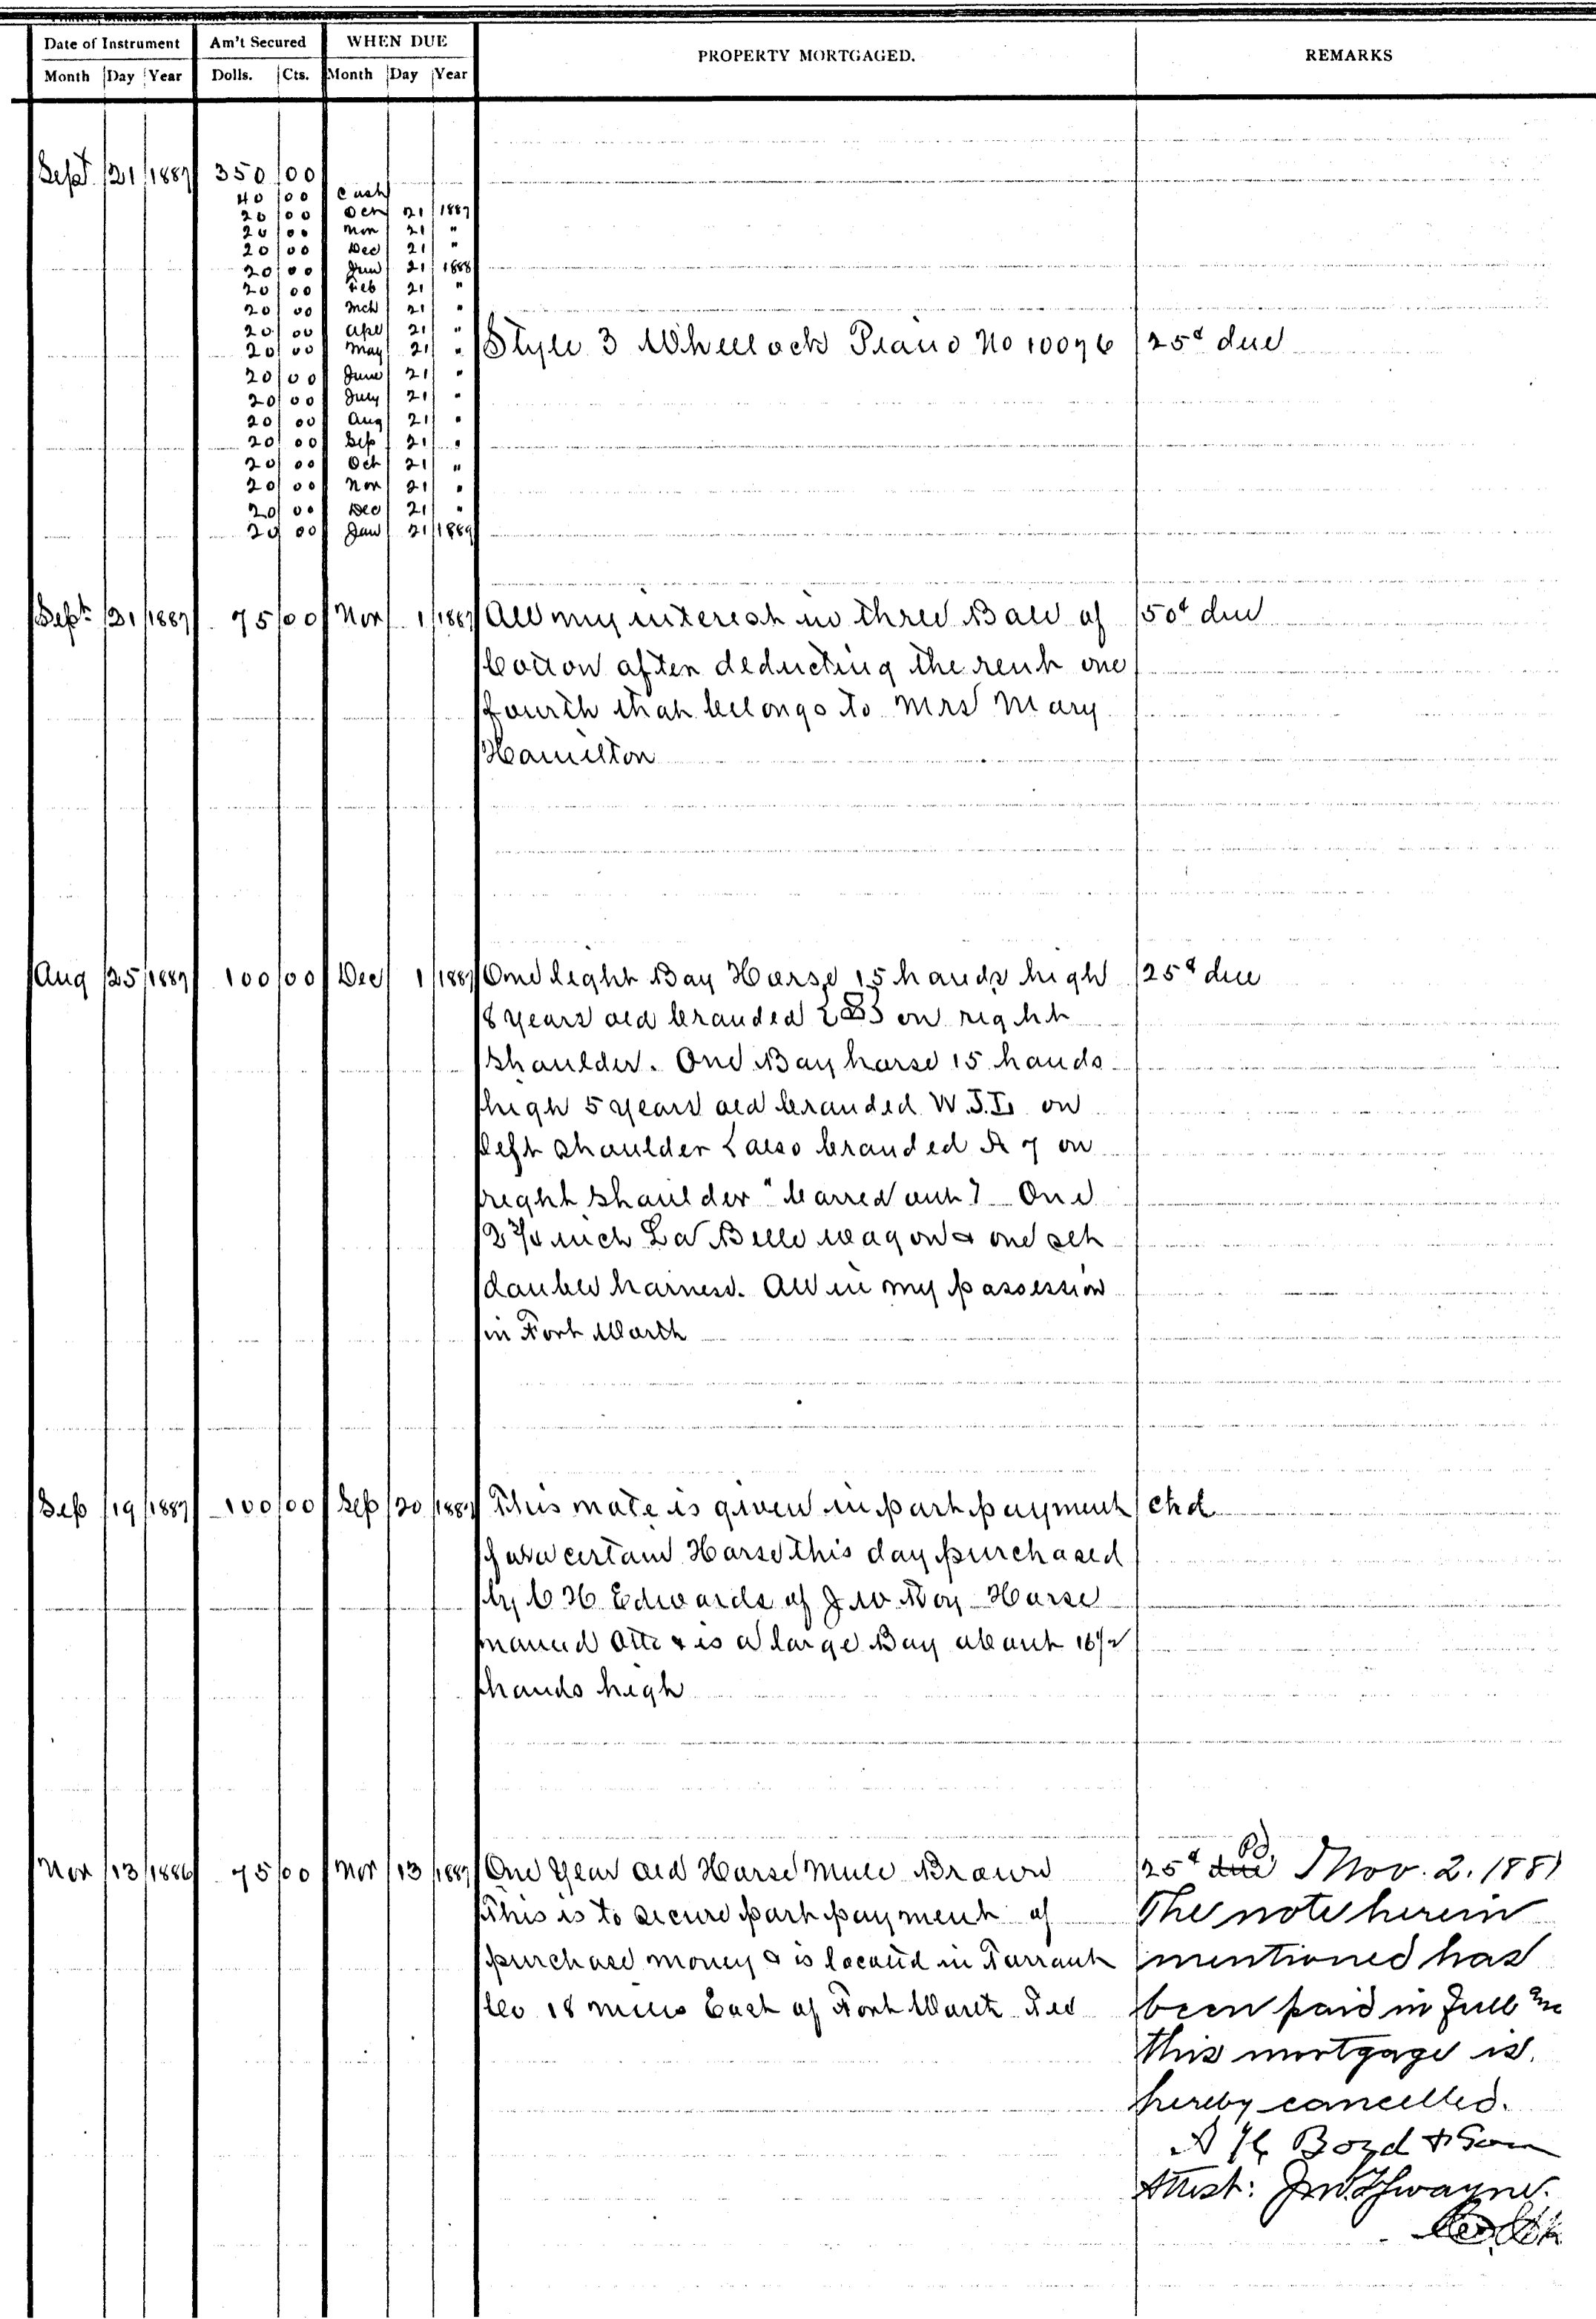 Date of Instrument Am't Secured WHEN DUE PROPERTY MORTGAGED. REMARKS
Month Day Year Dolls. Cts. Month Day Year
Sept 21 1887 350 00
40 00 Cash
20 00 Oct 21 1887
20 00 Nov 21 "
20 00 Dec 21 "
20 00 Jan 21 1888
20 00 Feb 21 "
20 00 Mch 21 "
20 00 Apl 21 "
20 00 May 21 " Style 3 Wheelock Piano No 10076 25¢ due
20 00 June 21 "
20 00 July 21 "
20 00 Aug 21 "
20 00 Sep 21 "
20 00 Oct 21 "
20 00 Nov 21 "
20 00 Dec 21 "
20 00 Jan 21 1889
Sept 21 1887 75 00 Nov 1 1887 All my interest in three Bale of 50¢ due
Cotton after deducting the rent one
fourth that belongs to Mrs Mary
Hamilton
Aug 25 1887 100 00 Dec 1 1887 One light Bay Horse 15 hands high 25¢ due
8 years old branded on right
shoulder. One Bay horse 15 hands
high 5 years old branded W.J.L on
left shoulder & also branded A 7 on
right shoulder "barred out" One
2 3/4 inch La Belle wagon & one set
double harness. All in my possession
in Fort Worth
Sep 19 1887 100 00 Sep 20 1887 This note is given in part payment chd
for a certain Horse this day purchased
by C H Edwards of J W Horse
named Otto & is a large Bay about 16 1/2
hands high
Nov 13 1886 75 00 Nov 13 1887 One Year old Horse Mule Brown 25¢ due Pd. Nov. 2. 1887
This is to secure part payment of The note herein
purchase money & is located in Tarrant mentioned has
Co 18 miles East of Fort Worth Tex been paid in full &
this mortgage is
hereby cancelled.
A H Boyd & Son
Attest: Jno. F Swayne.
Co. Clk